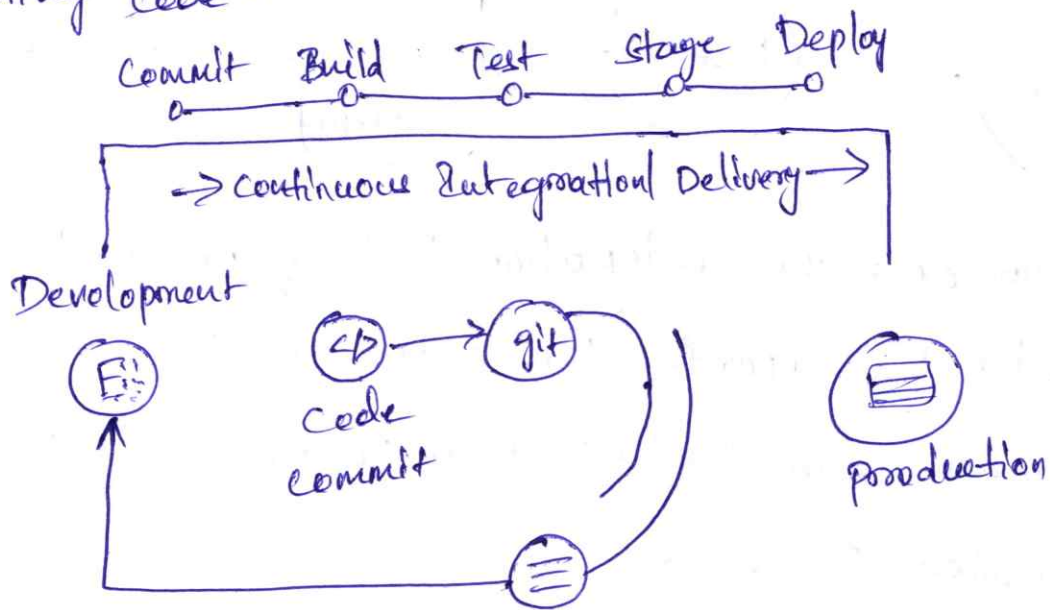 Code
Commit Build Test Stage Deploy
→ Continuous Integration/ Delivery →
Development
</> git
Code
commit
production